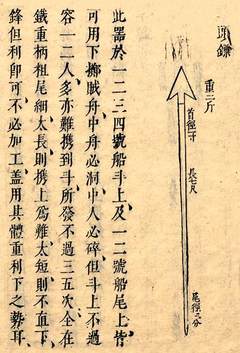 頭鏢
重三斤
首徑一寸
長七尺
尾徑三分
此器於一二三四號船斗上及一二號船尾上皆
可用下擲賊舟中舟必洞中人必碎但斗上不過
容一二人多亦難携到斗所發不過三五次全在
鐵重柄粗尾細太長則携上爲難太短則不直下
鋒但利即可不必加工蓋用其體重利下之勢耳